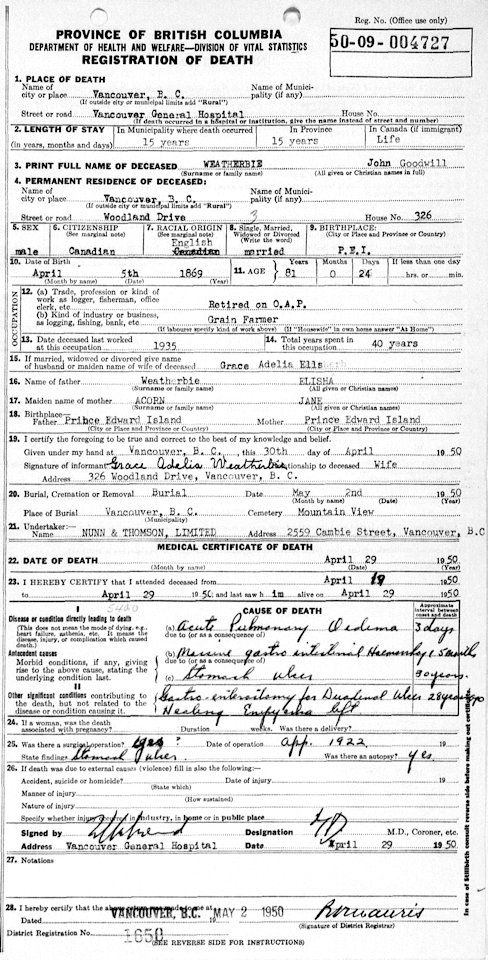 Reg. No. (Office use only)
50-09-004727
PROVINCE OF BRITISH COLUMBIA
DEPARTMENT OF HEALTH AND WELFARE—DIVISION OF VITAL STATISTICS
REGISTRATION OF DEATH
1. PLACE OF DEATH
Name of city or place Vancouver, B. C. Name of Municipality (if any)
(If outside city or municipal limits add "Rural")
Street or road Vancouver General Hospital House No.
(If death occurred in a hospital or institution, give the name instead of street and number)
2. LENGTH OF STAY In Municipality where death occurred In Province In Canada (if immigrant)
(in years, months and days) 15 years 15 years Life
3. PRINT FULL NAME OF DECEASED WEATHERBIE John Goodwill
(Surname or family name) (All given or Christian names in full)
4. PERMANENT RESIDENCE OF DECEASED:
Name of city or place Vancouver, B. C. Name of Municipality (if any)
(If outside city or municipal limits add "Rural")
Street or road Woodland Drive 3 House No. 326
5. SEX 6. CITIZENSHIP 7. RACIAL ORIGIN 8. Single, Married, Widowed or Divorced 9. BIRTHPLACE:
(See marginal note) (See marginal note) (Write the word) (City or Place and Province or Country)
English
male Canadian Canadian married P.E.I.
10. Date of Birth 11. AGE Years Months Days If less than one day
April 5th 1869 81 0 24 hrs. or min.
(Month by name) (Date) (Year)
OCCUPATION
12. (a) Trade, profession or kind of work as logger, fisherman, office clerk, etc. Retired on O.A.P.
(b) Kind of industry or business, as logging, fishing, bank, etc Grain Farmer
(If labourer specify kind of work above) (If "Housewife" in own home answer "At Home")
13. Date deceased last worked at this occupation 1935 14. Total years spent in this occupation 40 years
15. If married, widowed or divorced give name of husband or maiden name of wife of deceased Grace Adelia Ells
16. Name of father Weatherbie ELISHA
(Surname or family name) (All given or Christian names)
17. Maiden name of mother ACORN JANE
(Surname or family name) (All given or Christian names)
18. Birthplace—
Father Prince Edward Island Mother Prince Edward Island
(City or Place and Province or Country) (City or Place and Province or Country)
19. I certify the foregoing to be true and correct to the best of my knowledge and belief.
Given under my hand at Vancouver, B. C., this 30th day of April 1950
Signature of informant Grace Adelia Weatherbie Relationship to deceased Wife
Address 326 Woodland Drive, Vancouver, B. C.
20. Burial, Cremation or Removal Burial Date May 2nd 1950
(Month by name) (Date) (Year)
Place of Burial Vancouver, B. C. Cemetery Mountain View
(Municipality)
21. Undertaker:—
Name NUNN & THOMSON, LIMITED Address 2559 Cambie Street, Vancouver, B.C
MEDICAL CERTIFICATE OF DEATH
22. DATE OF DEATH April 29 1950
(Month by name) (Date) (Year)
23. I HEREBY CERTIFY that I attended deceased from April 19 1950
to April 29 1950; and last saw him alive on April 29 1950
5400
I
CAUSE OF DEATH
Approximate interval between onset and death
Disease or condition directly leading to death
(This does not mean the mode of dying, e.g. heart failure, asthenia, etc. It means the disease, injury, or complication which caused death.)
(a) Acute Pulmonary Oedema 3 days
due to (or as a consequence of)
Antecedent causes
Morbid conditions, if any, giving rise to the above cause, stating the underlying condition last.
(b) Massive gastro intestinal Haemorrhage 1.5 month
due to (or as a consequence of)
(c) Stomach ulcer 30 years.
II
Other significant conditions contributing to the death, but not related to the disease or condition causing it.
Gastro enterostomy for Duodenal Ulcer 28 years ago
Healing Empyema left
24. If a woman, was the death associated with pregnancy? Duration weeks. Was there a delivery?
25. Was there a surgical operation? yes Date of operation app. 1922 19
State findings Stomach ulcer Was there an autopsy? yes.
26. If death was due to external causes (violence) fill in also the following:—
Accident, suicide or homicide? Date of injury 19
(State which)
Manner of injury
(How sustained)
Nature of injury
Specify whether injury occurred in industry, in home or in public place
Signed by Designation MD M.D., Coroner, etc.
Address Vancouver General Hospital Date April 29 1950
27. Notations
28. I hereby certify that the above return was made to me at
Dated VANCOUVER, B.C. MAY 2 1950
District Registration No. 1650 (Signature of District Registrar)
(SEE REVERSE SIDE FOR INSTRUCTIONS)
In case of Stillbirth consult reverse side before making out certificate